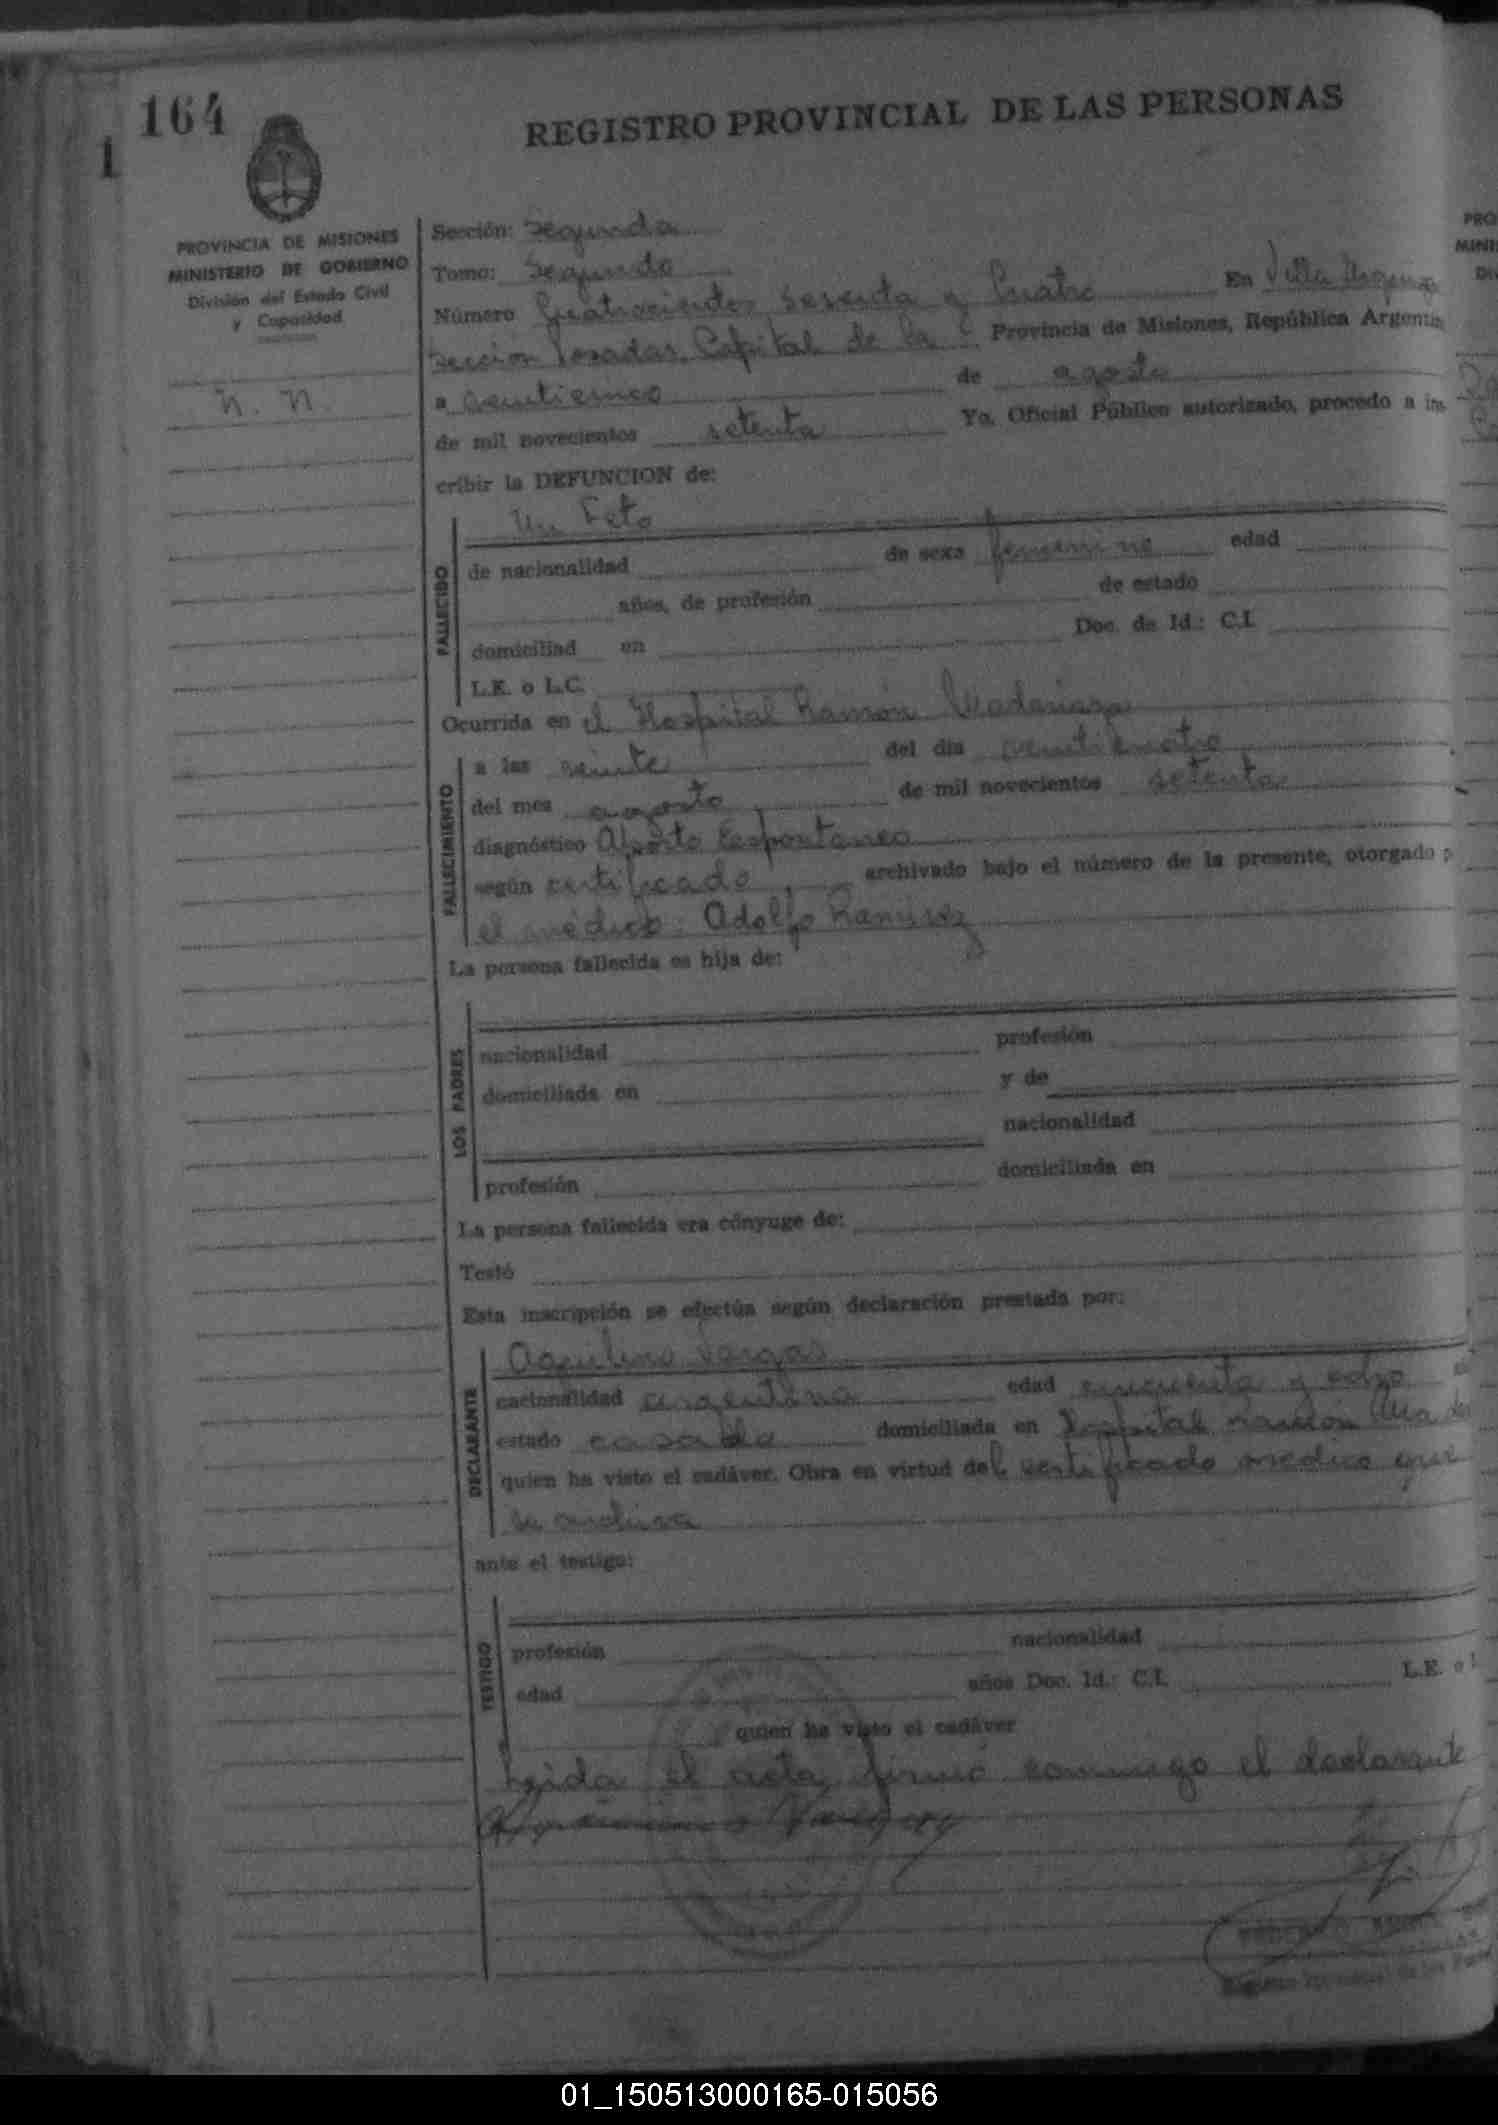 164
1
REGISTRO PROVINCIAL DE LAS PERSONAS
PROVINCIA DE MISIONES
MINISTERIO DE GOBIERNO
División del Estado Civil
y Capacidad
N. N.
Sección: Segunda
Tomo: Segundo
Número Cuatrocientos sesenta y Cuatro En Villa Urquiza
Sección Posadas, Capital de la Provincia de Misiones, República Argentin
a veinticinco de agosto
de mil novecientos setenta Yo, Oficial Público autorizado, procedo a ins
cribir la DEFUNCION de:
FALLECIDO
Un Feto
de nacionalidad de sexo femenino edad
años, de profesión de estado
domiciliad en Doc. de Id.: C.I.
L.E. o L.C.
Ocurrida en el Hospital Ramón Madariaga
FALLECIMIENTO
a las veinte del día veinticuatro
del mes agosto de mil novecientos setenta
diagnóstico Aborto Espontaneo
según certificado, archivado bajo el número de la presente, otorgado p
el médico: Adolfo Ramirez
La persona fallecida es hija de:
LOS PADRES
nacionalidad profesión
domiciliada en y de
nacionalidad
profesión domiciliada en
La persona fallecida era cónyuge de:
Testó
Esta inscripción se efectúa según declaración prestada por:
DECLARANTE
Aquilino Vargas
nacionalidad argentina edad cincuenta y ocho
estado casado domiciliada en Hospital Ramón Mada
quien ha visto el cadáver. Obra en virtud del certificado medico que
se archiva
ante el testigo:
TESTIGO
profesión nacionalidad
edad años Doc. Id.: C.I. L.E. o
quien ha visto el cadáver
Leida el acta, firmó conmigo el declarante
Vargas
PRO
MINI
01_150513000165-015056